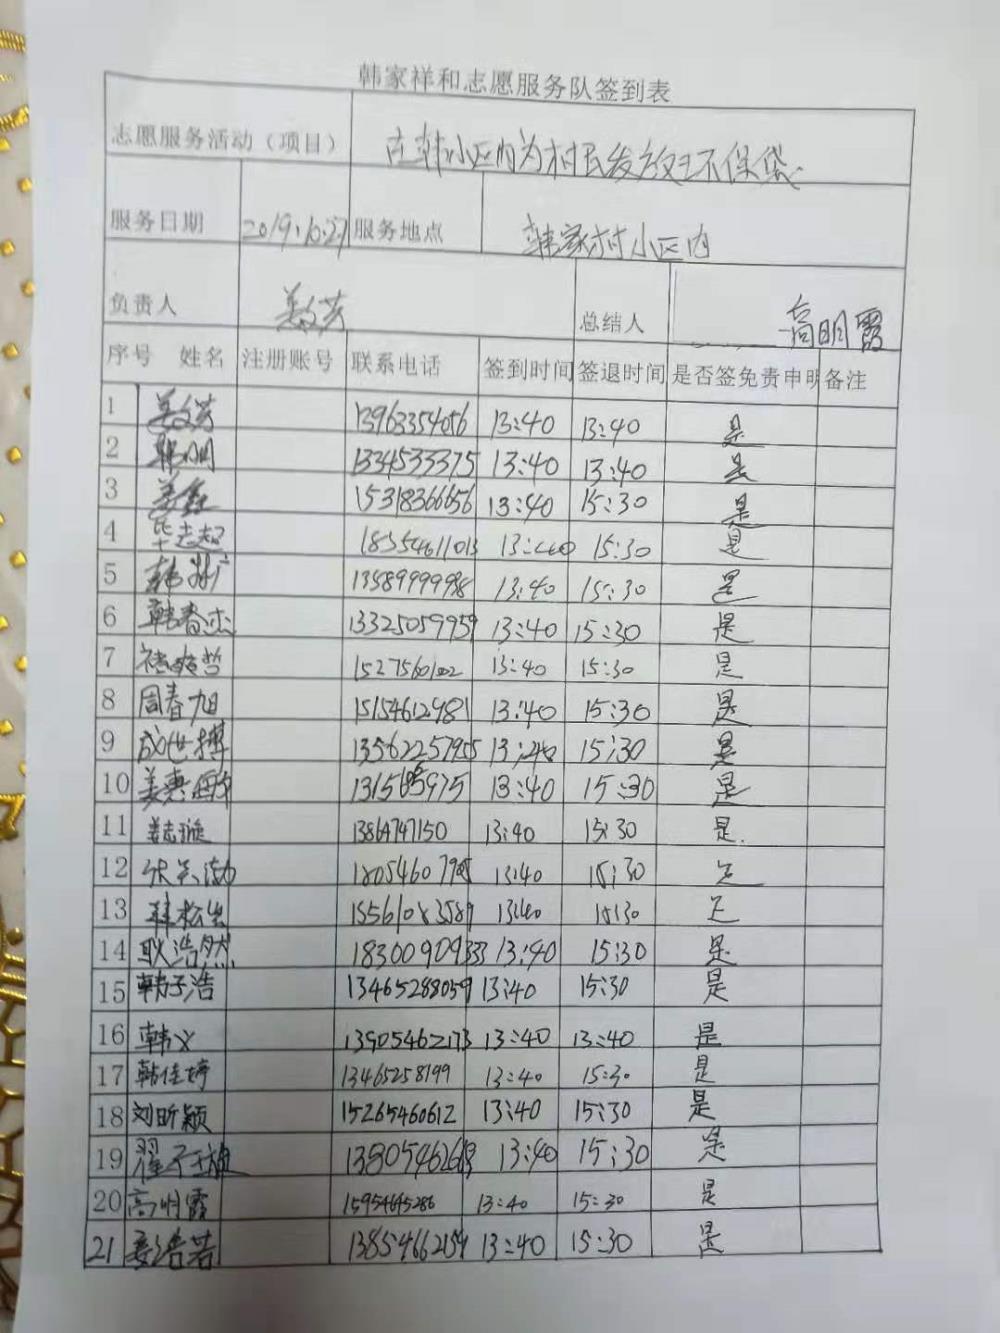 韩家祥和志愿服务队签到表
志愿服务活动（项目） 在韩小区内为村民发放环保袋
服务日期 2019.10.27 服务地点 韩家村小区内
负责人 姜文芳 总结人 高明霞
序号 姓名 注册账号 联系电话 签到时间 签退时间 是否签免责申明 备注
1 姜文芳 13963354056 13:40 13:40 是
2 韩明 1334533375 13:40 13:40 是
3 姜鑫 15318366656 13:40 15:30 是
4 毕志超 18354611013 13:40 15:30 是
5 13589999998 13:40 15:30 是
6 韩春杰 13325059959 13:40 15:30 是
7 15275601002 13:40 15:30 是
8 周春旭 15154612981 13:40 15:30 是
9 成世搏 13562257955 13:40 15:30 是
10 姜惠敏 13:40 15:30 是
11 姜志璇 13864747150 13:40 15:30 是.
12 13:40 15:30 是
13 韩松 13:40 15:30 是
14 耿浩然 18300909333 13:40 15:30 是
15 韩子浩 13465288059 13:40 15:30 是
16 韩义 13905462173 13:40 13:40 是
17 韩佳婷 13465258199 13:40 15:30 是
18 刘昕颖 15265460612 13:40 15:30 是
19 翟 13:40 15:30 是
20 高明霞 15954645286 13:40 15:30 是
21 姜浩若 13854662154 13:40 15:30 是